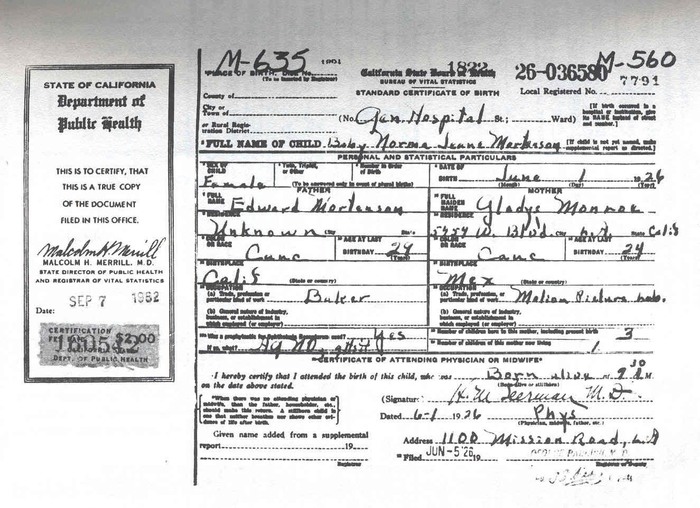 STATE OF CALIFORNIA
Department of
Public Health
THIS IS TO CERTIFY, THAT
THIS IS A TRUE COPY
OF THE DOCUMENT
FILED IN THIS OFFICE.
Malcolm H. Merrill
MALCOLM H. MERRILL, M.D.
STATE DIRECTOR OF PUBLIC HEALTH
AND REGISTRAR OF VITAL STATISTICS
SEP 7 1962
Date:
CERTIFICATION
FEE PAID $2.00
DEPT. OF PUBLIC HEALTH
M-635 1901 1822 26-036580 M-560
PLACE OF BIRTH. Dist. No. California State Board of Health 7791
BUREAU OF VITAL STATISTICS
STANDARD CERTIFICATE OF BIRTH Local Registered No.
County of
City or
Town of (No. Gen. Hospital St.; Ward)
or Rural Registration District
[If birth occurred in a hospital or institution, give its NAME instead of street and number.]
FULL NAME OF CHILD Baby Norma Jeane Mortenson [If child is not yet named, make supplemental report as directed.]
PERSONAL AND STATISTICAL PARTICULARS
SEX OF CHILD Female Twin, Triplet, or Other Number in Order of Birth DATE OF BIRTH June 1 1926
(To be answered only in event of plural births) (Month) (Day)
FATHER MOTHER
FULL NAME Edward Mortenson FULL MAIDEN NAME Gladys Monroe
RESIDENCE Unknown City State RESIDENCE 5454 W. Blvd. City L.A. State Calif
COLOR OR RACE Cauc AGE AT LAST BIRTHDAY 29 COLOR OR RACE Cauc AGE AT LAST BIRTHDAY 24
BIRTHPLACE Calif (State or country) BIRTHPLACE Mex (State or country)
OCCUPATION OCCUPATION
(a) Trade, profession, or particular kind of work Baker (a) Trade, profession, or particular kind of work Motion Picture
(b) General nature of industry, business, or establishment in which employed (or employer) (b) General nature of industry, business, or establishment in which employed (or employer)
Was a prophylactic for Ophthalmia Neonatorum used? Yes Number of children born to this mother, including present birth 3
If so, what? Number of children of this mother now living 1
CERTIFICATE OF ATTENDING PHYSICIAN OR MIDWIFE
I hereby certify that I attended the birth of this child, who was Born alive at 9 30 M
on the date above stated.
When there was no attending physician or midwife, then the father, householder, etc., should make this return. A stillborn child is one that neither breathes nor shows other evidence of life after birth.
(Signature) M.D.
Dated 6-1 1926 Phys
(Physician, midwife, father, etc.)
Given name added from a supplemental
report 19
Address 1100 Mission Road, L.A
Filed JUN-5'26 19
Registrar Registrar or Deputy